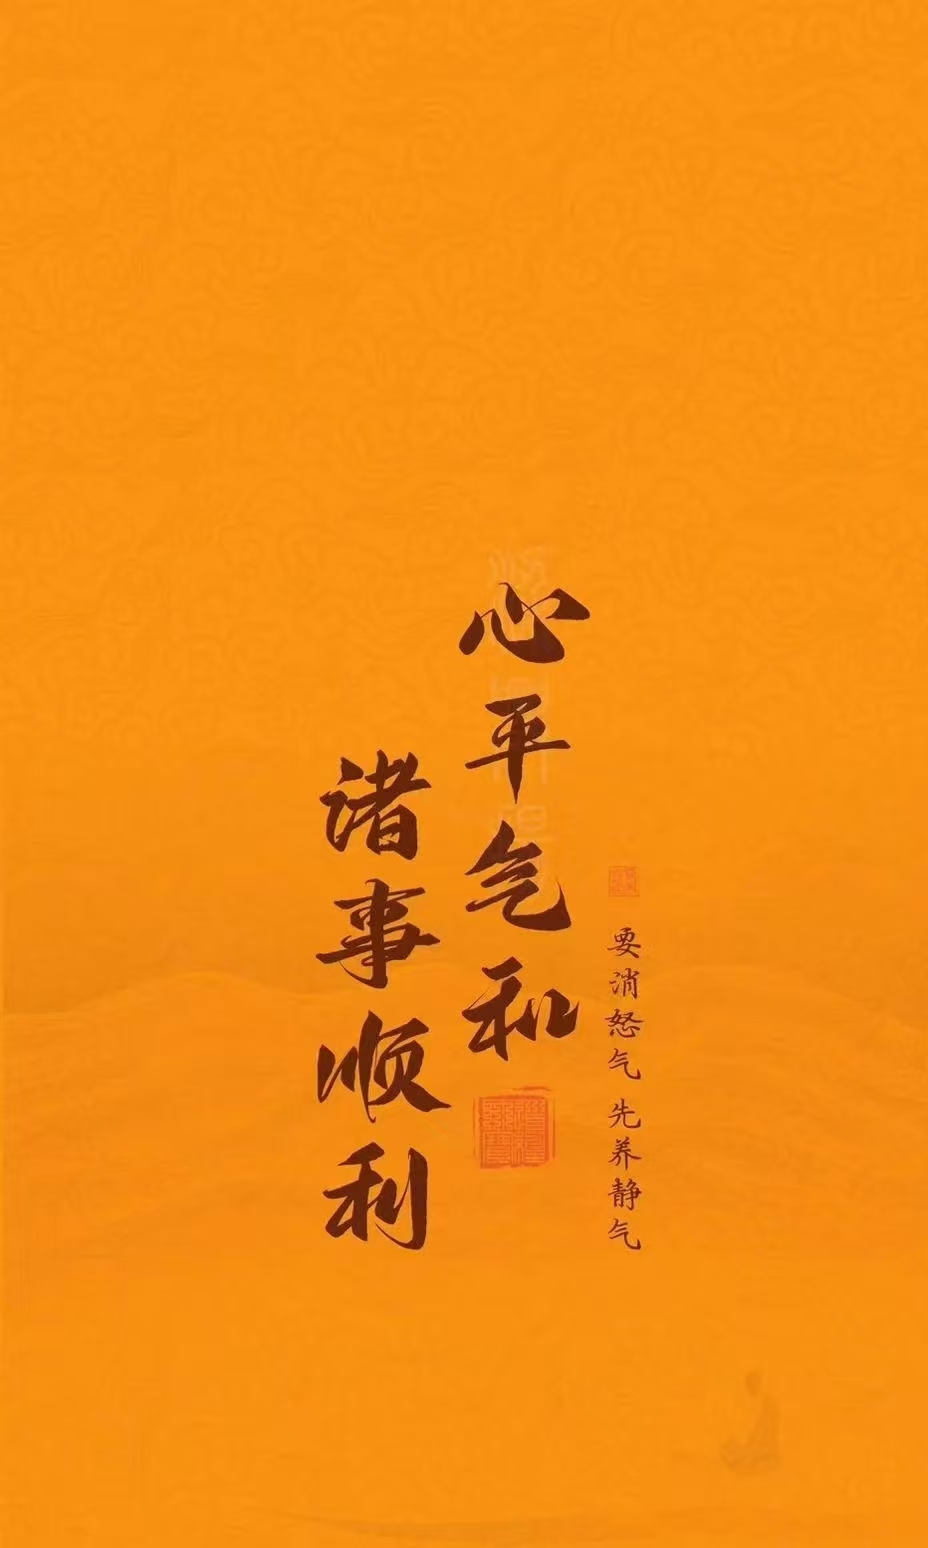 心平气和
诸事顺利
要消怒气 先养静气